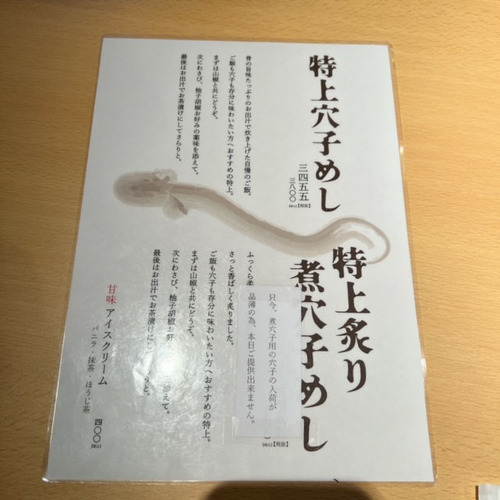 特上穴子めし
三四五五
三八〇〇
【税抜】
骨の旨味たっぷりのお出汁で炊き上げた自慢のご飯。
ご飯も穴子も存分に味わいたい方へおすすめの特上。
まずは山椒と共にどうぞ。
次にわさび、柚子胡椒お好みの薬味を添えて。
最後はお出汁でお茶漬けにしてさらりと。
特上炙り
煮穴子めし
【税抜】
只今、煮穴子用の穴子の入荷が
品薄の為、本日ご提供出来ません。
ふっくら煮
さっと香ばしく炙りました。
ご飯も穴子も存分に味わいたい方へおすすめの特上。
まずは山椒と共にどうぞ。
次にわさび、柚子胡椒お好 添えて。
最後はお出汁でお茶漬けに りと。
甘味 アイスクリーム
バニラ・抹茶・ほうじ茶
四〇〇